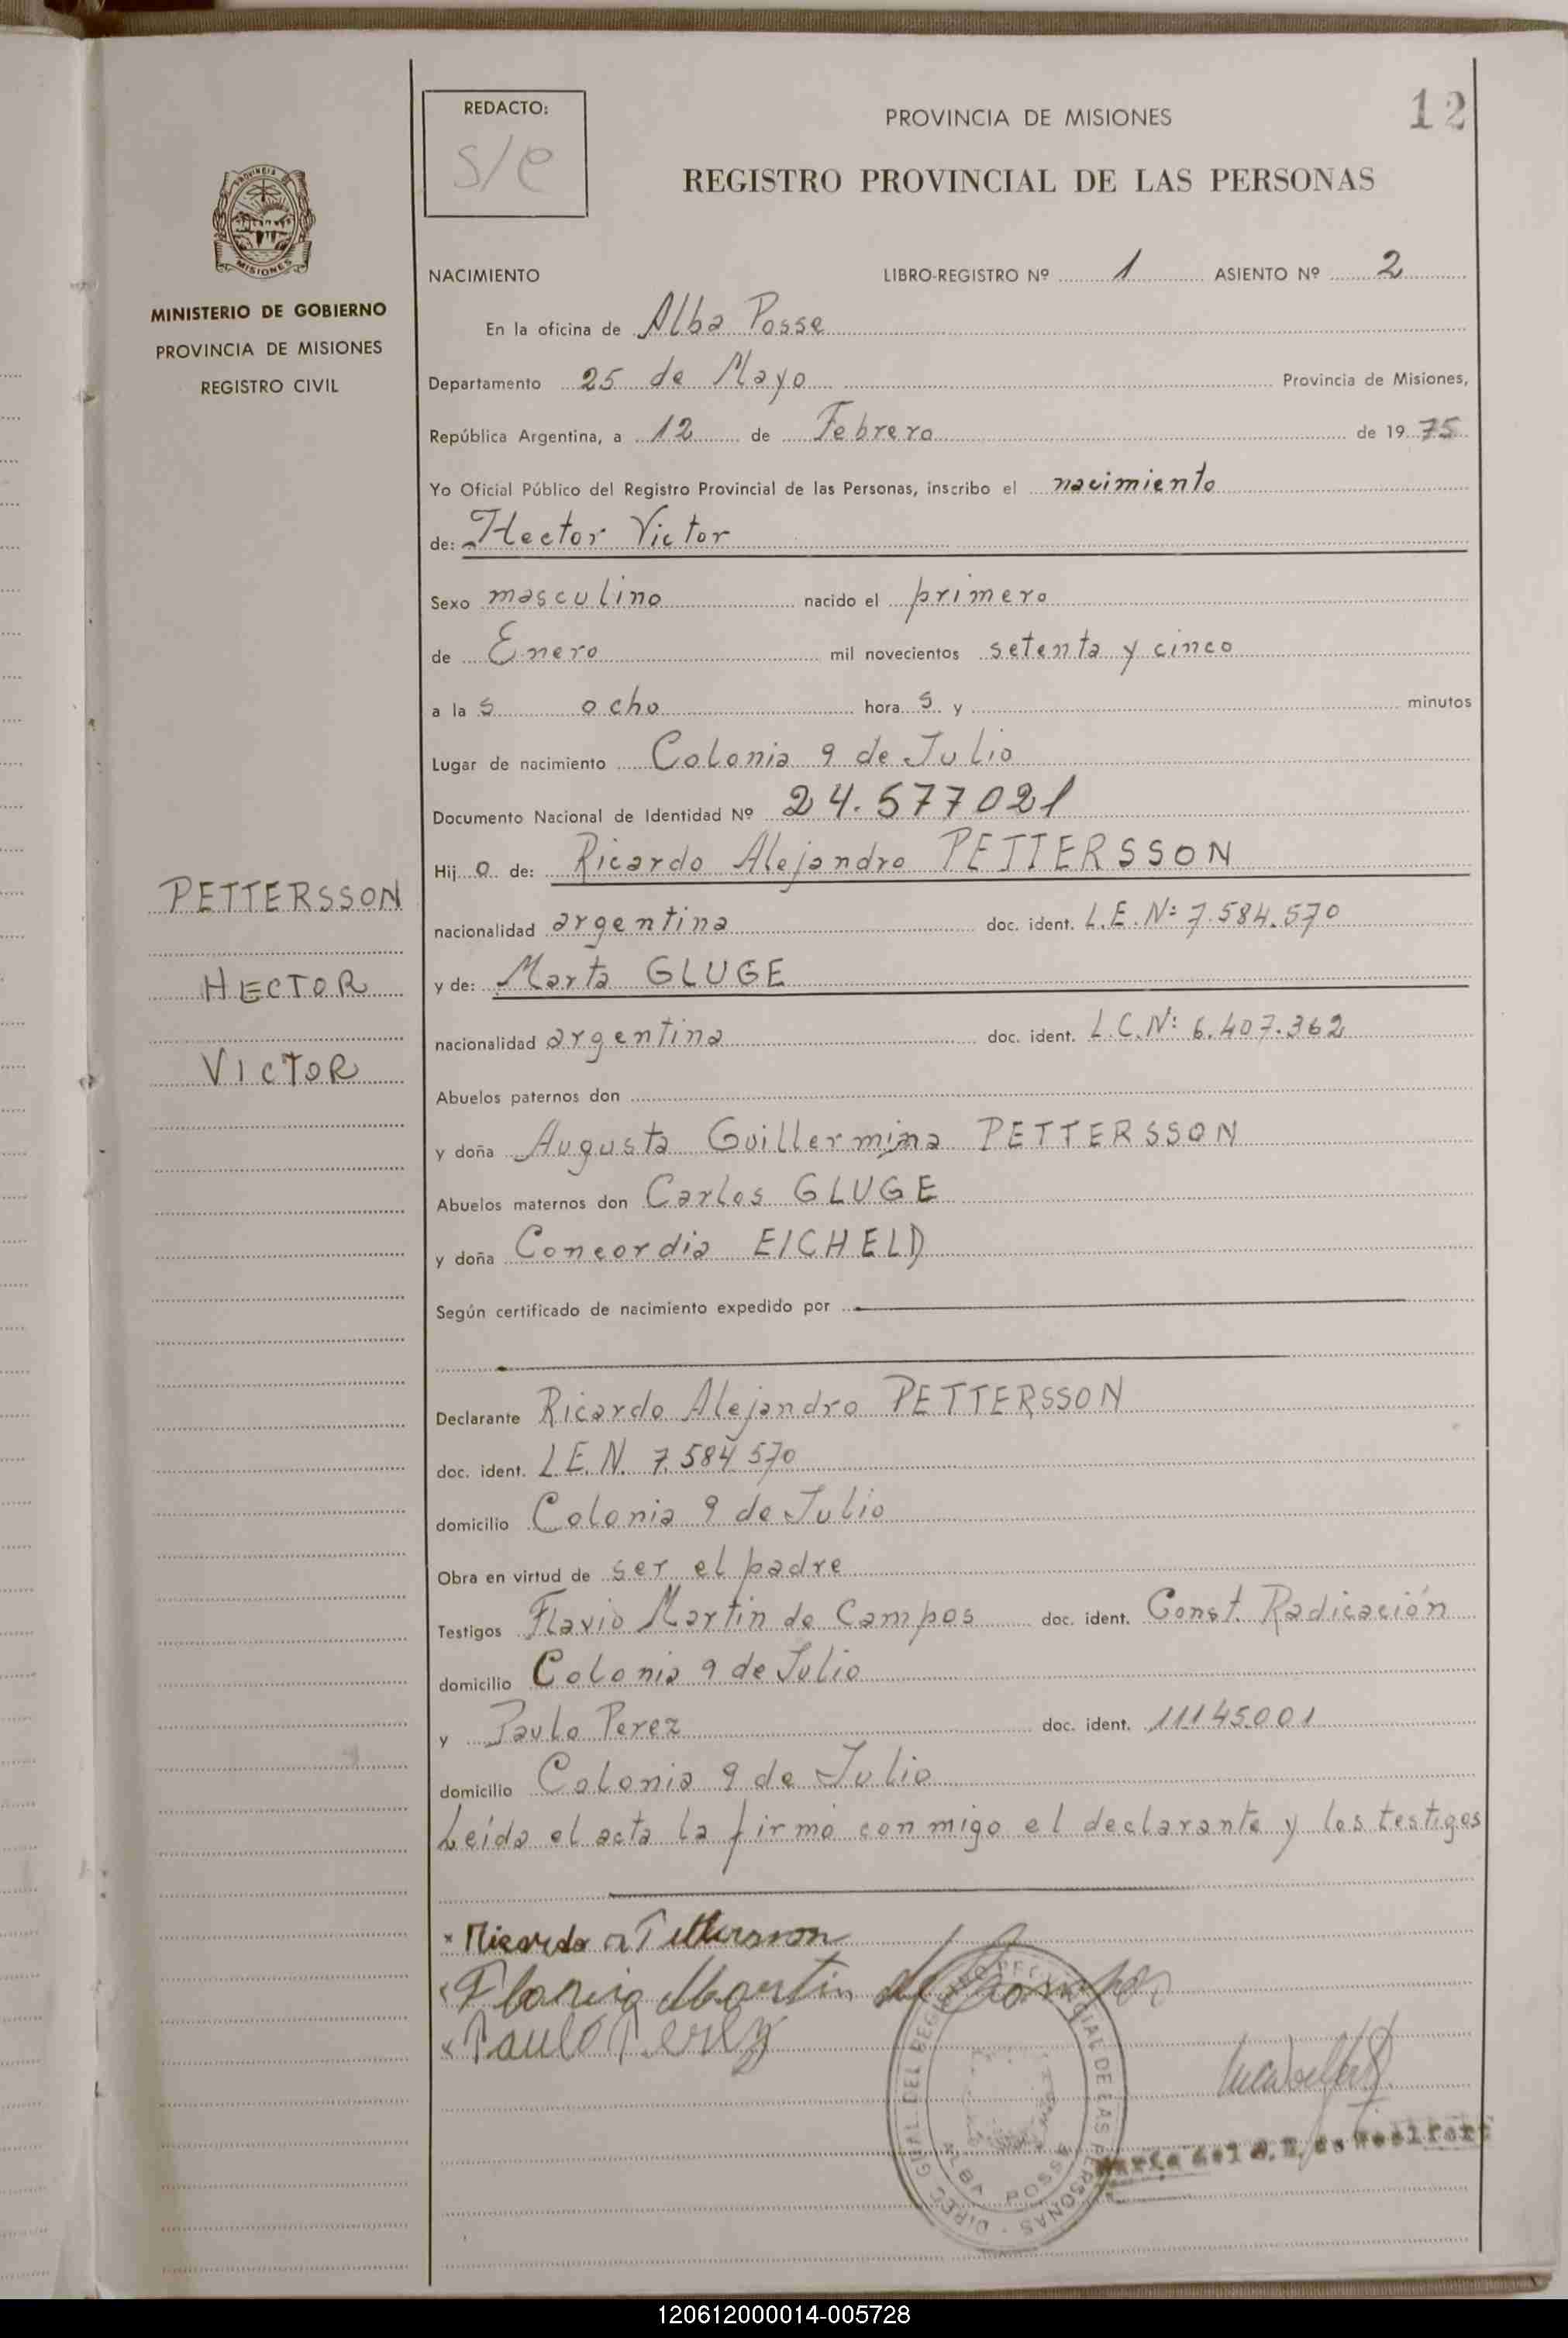 12
REDACTO:
s/e
PROVINCIA DE MISIONES
REGISTRO PROVINCIAL DE LAS PERSONAS
PROVINCIA
MISIONES
MINISTERIO DE GOBIERNO
PROVINCIA DE MISIONES
REGISTRO CIVIL
NACIMIENTO LIBRO-REGISTRO Nº 1 ASIENTO Nº 2
En la oficina de Alba Posse
Departamento 25 de Mayo Provincia de Misiones,
República Argentina, a 12 de Febrero de 1975
Yo Oficial Público del Registro Provincial de las Personas, inscribo el nacimiento
de: Hector Victor
Sexo masculino nacido el primero
de Enero mil novecientos setenta y cinco
a las ocho horas y minutos
Lugar de nacimiento Colonia 9 de Julio
Documento Nacional de Identidad Nº 24.577021
Hijo de: Ricardo Alejandro PETTERSSON
nacionalidad argentina doc. ident. L.E.Nº 7.584.570
y de: Marta GLUGE
nacionalidad argentina doc. ident. L.C.Nº 6.407.362
PETTERSSON
HECTOR
VICTOR
Abuelos paternos don
y doña Augusta Guillermina PETTERSSON
Abuelos maternos don Carlos GLUGE
y doña Concordia EICHELD
Según certificado de nacimiento expedido por
Declarante Ricardo Alejandro PETTERSSON
doc. ident. L.E.N. 7.584 570
domicilio Colonia 9 de Julio
Obra en virtud de ser el padre
Testigos Flavio Martin de Campos doc. ident. Const. Radicación
domicilio Colonia 9 de Julio
y Paulo Perez doc. ident. 11145001
domicilio Colonia 9 de Julio
Leída el acta la firmó conmigo el declarante y los testigos
Ricardo A Pettersson
Flavio Martin de Campos
Paulo Perez
DIREC. GRAL. DEL REGISTRO PROVINCIAL DE LAS PERSONAS
ALBA POSSE
María del
120612000014-005728